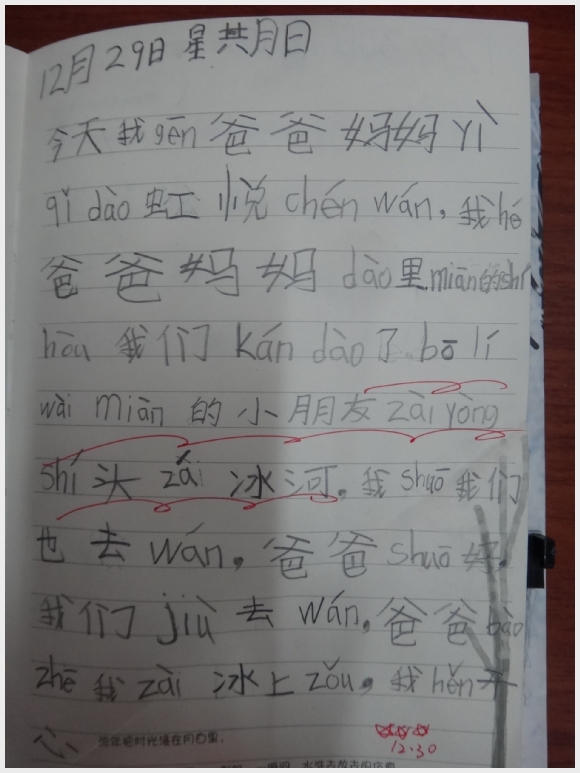 12月29日 星共月日
今天我gēn爸爸妈妈yì
qǐ dào虹悦chén wán,我hé
爸爸妈妈dào里miān的shí
hōu我们kán dào了bō lí
wài miān的小朋友zài yòng
shí头zǎi冰河。我shuō我们
也去wán。爸爸shuō好。
我们jiù去wán。爸爸bào
zhē我zài冰上zǒu。我hěn开
心
12.30